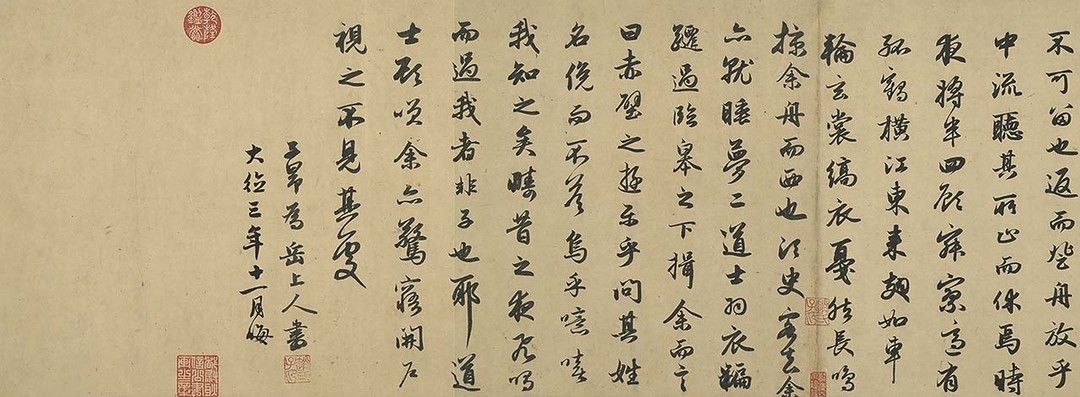 不可留也返而登舟放乎
中流聽其所止而休焉時
夜將半四顧寂寥適有
孤鶴橫江東來翅如車
輪玄裳縞衣戛然長鳴
掠余舟而西也須臾客去余
亦就睡夢二道士羽衣蹁
躚過臨皋之下揖余而言
曰赤壁之遊樂乎問其姓
名俛而不答烏乎噫嘻
我知之矣疇昔之夜飛鳴
而過我者非子也耶道
士顧笑余亦驚寤開戶
視之不見其處
子昂為岳上人書
大德三年十一月晦
乾隆鑑賞